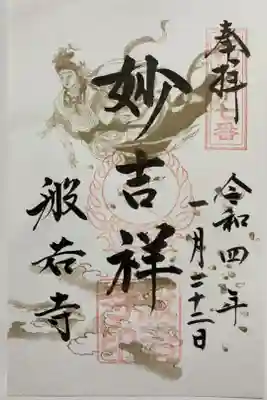 奉拝
令和四年
一月二十二日
妙吉祥
般若寺